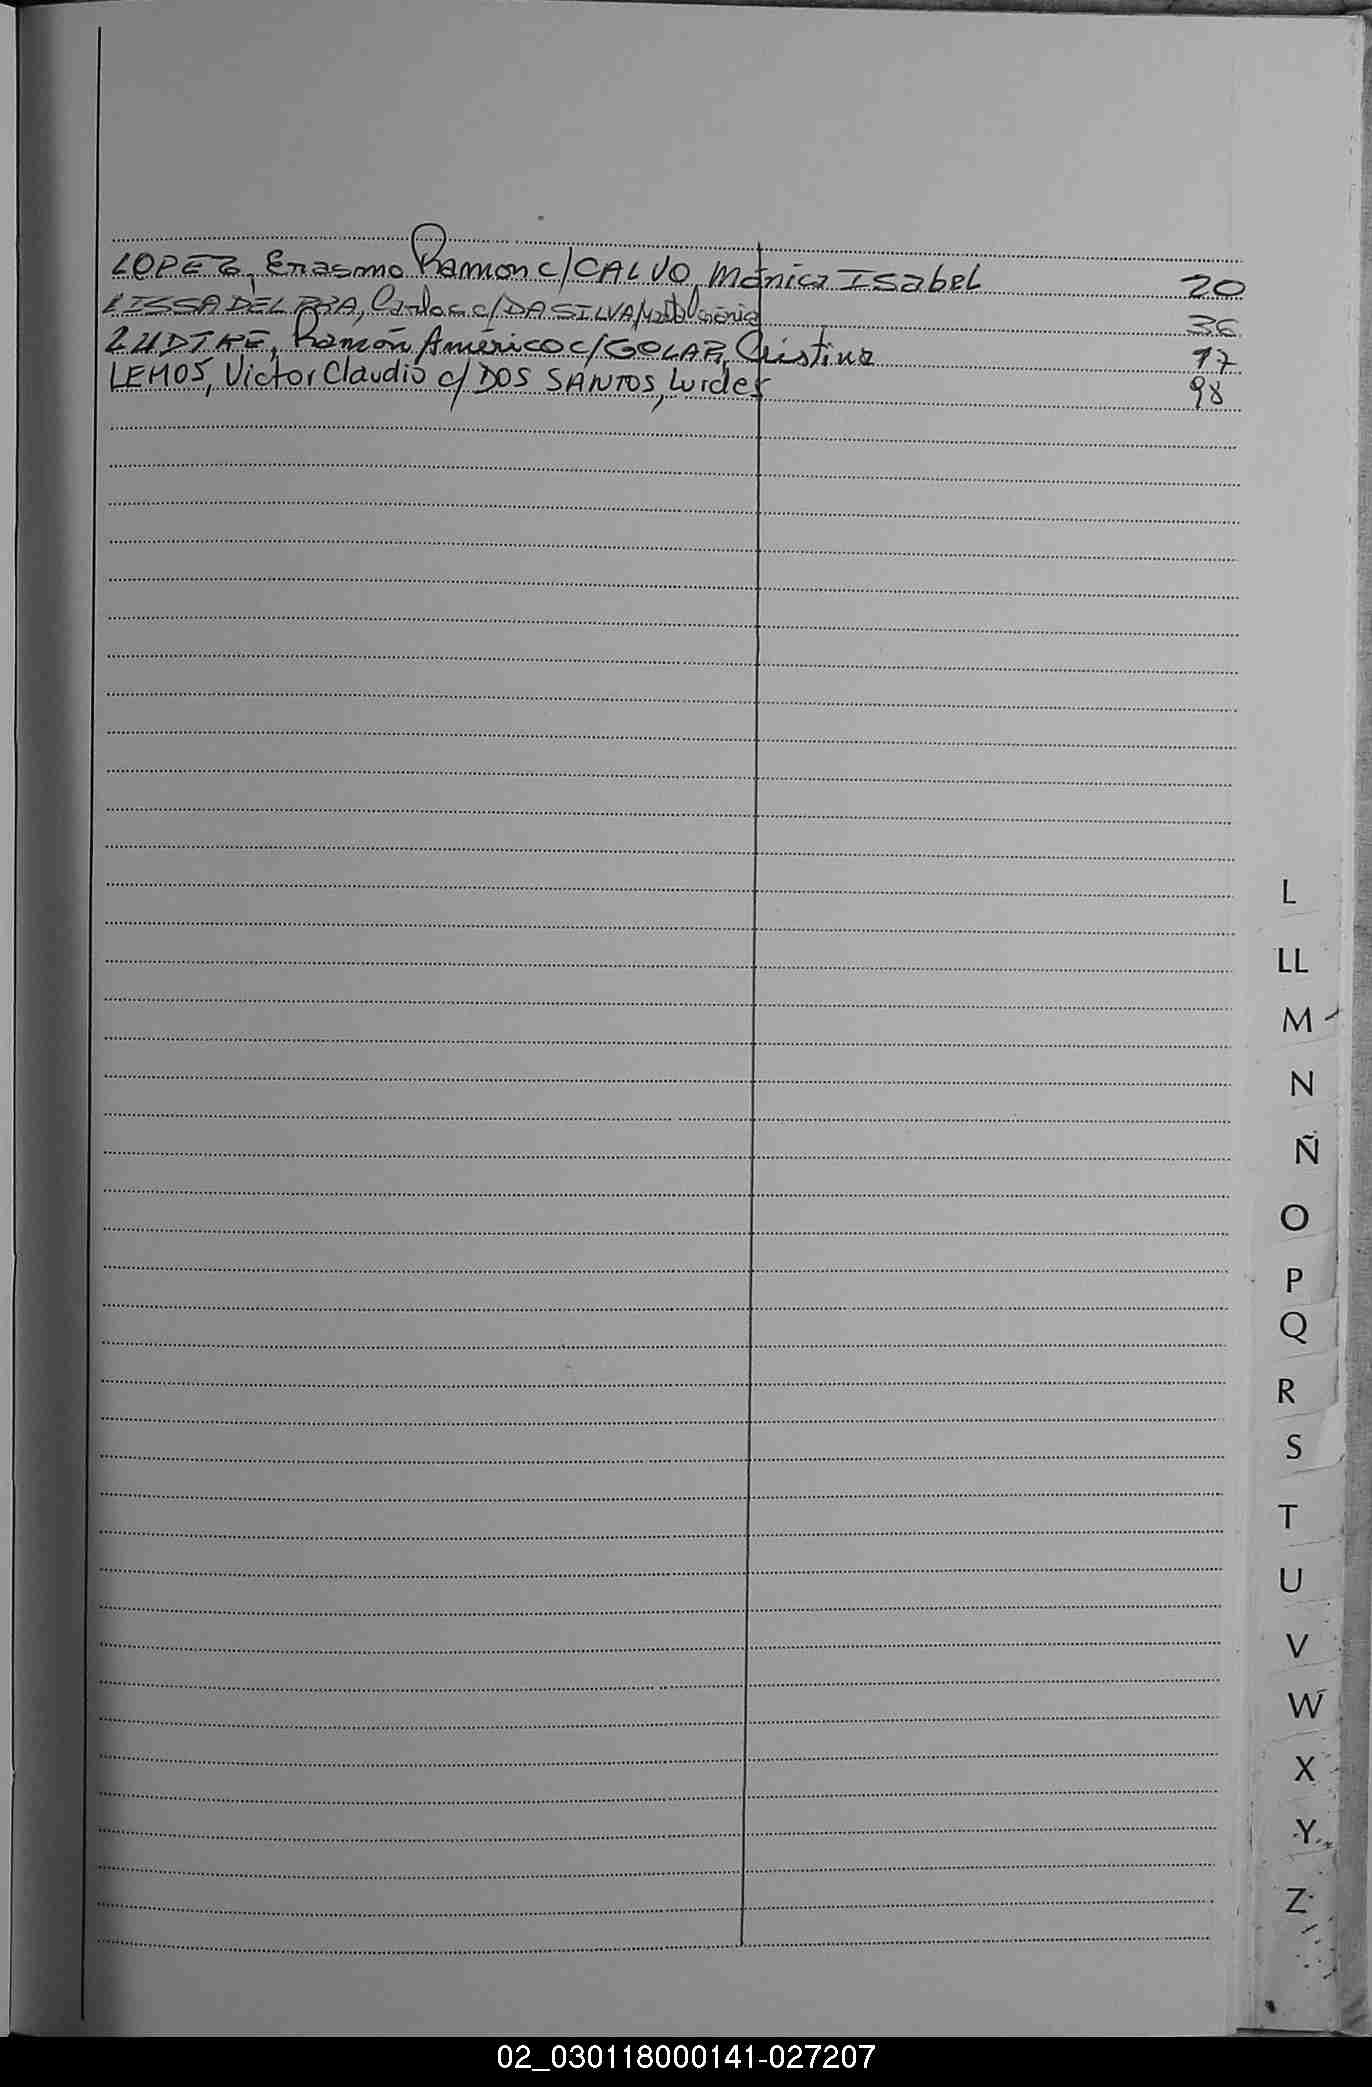 LOPEZ, Erasmo Ramon c/CALVO, Mónica Isabel 20
LISSA DEL PRA, Carlos c/DA SILVA, 36
LUDTKE, Ramón Américo c/GOLAR, Cristina 77
LEMOS, Victor Claudio c/ DOS SANTOS, Lurdes 98
L
LL
M
N
Ñ
O
P
Q
R
S
T
U
V
W
X
Y
Z
02_030118000141-027207